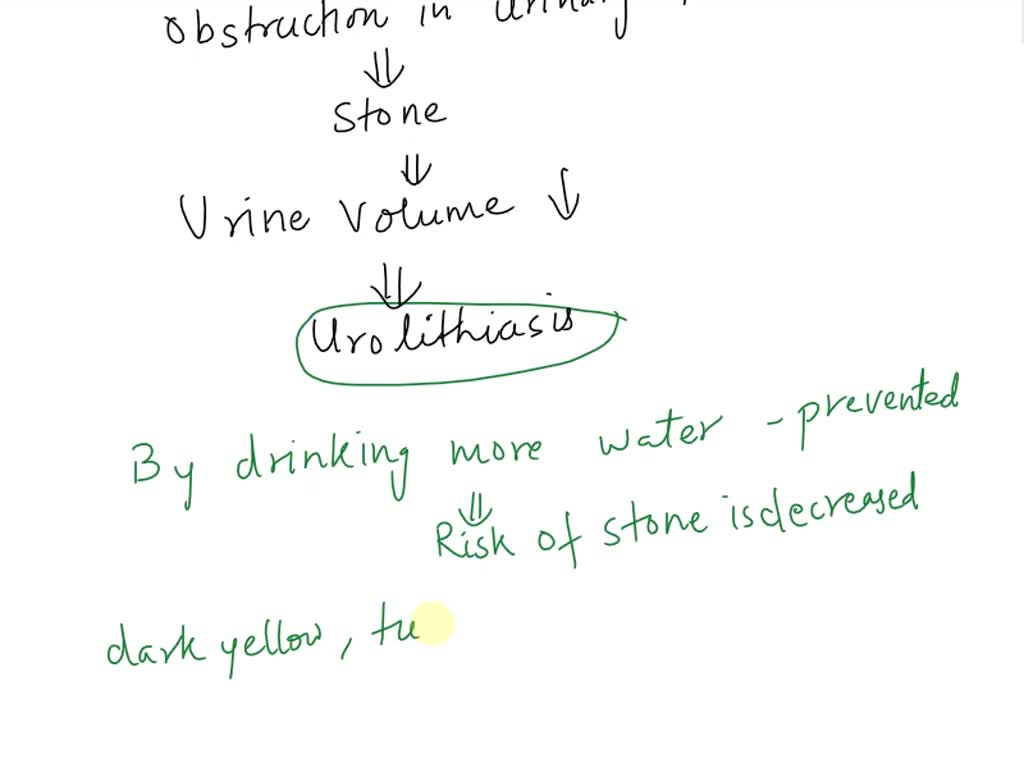 Obstruction in Urinary
⇓
Stone
⇓
Urine Volume ↓
⇓
Urolithiasis
By drinking more water - prevented
⇓
Risk of stone is decreased
dark yellow, tu